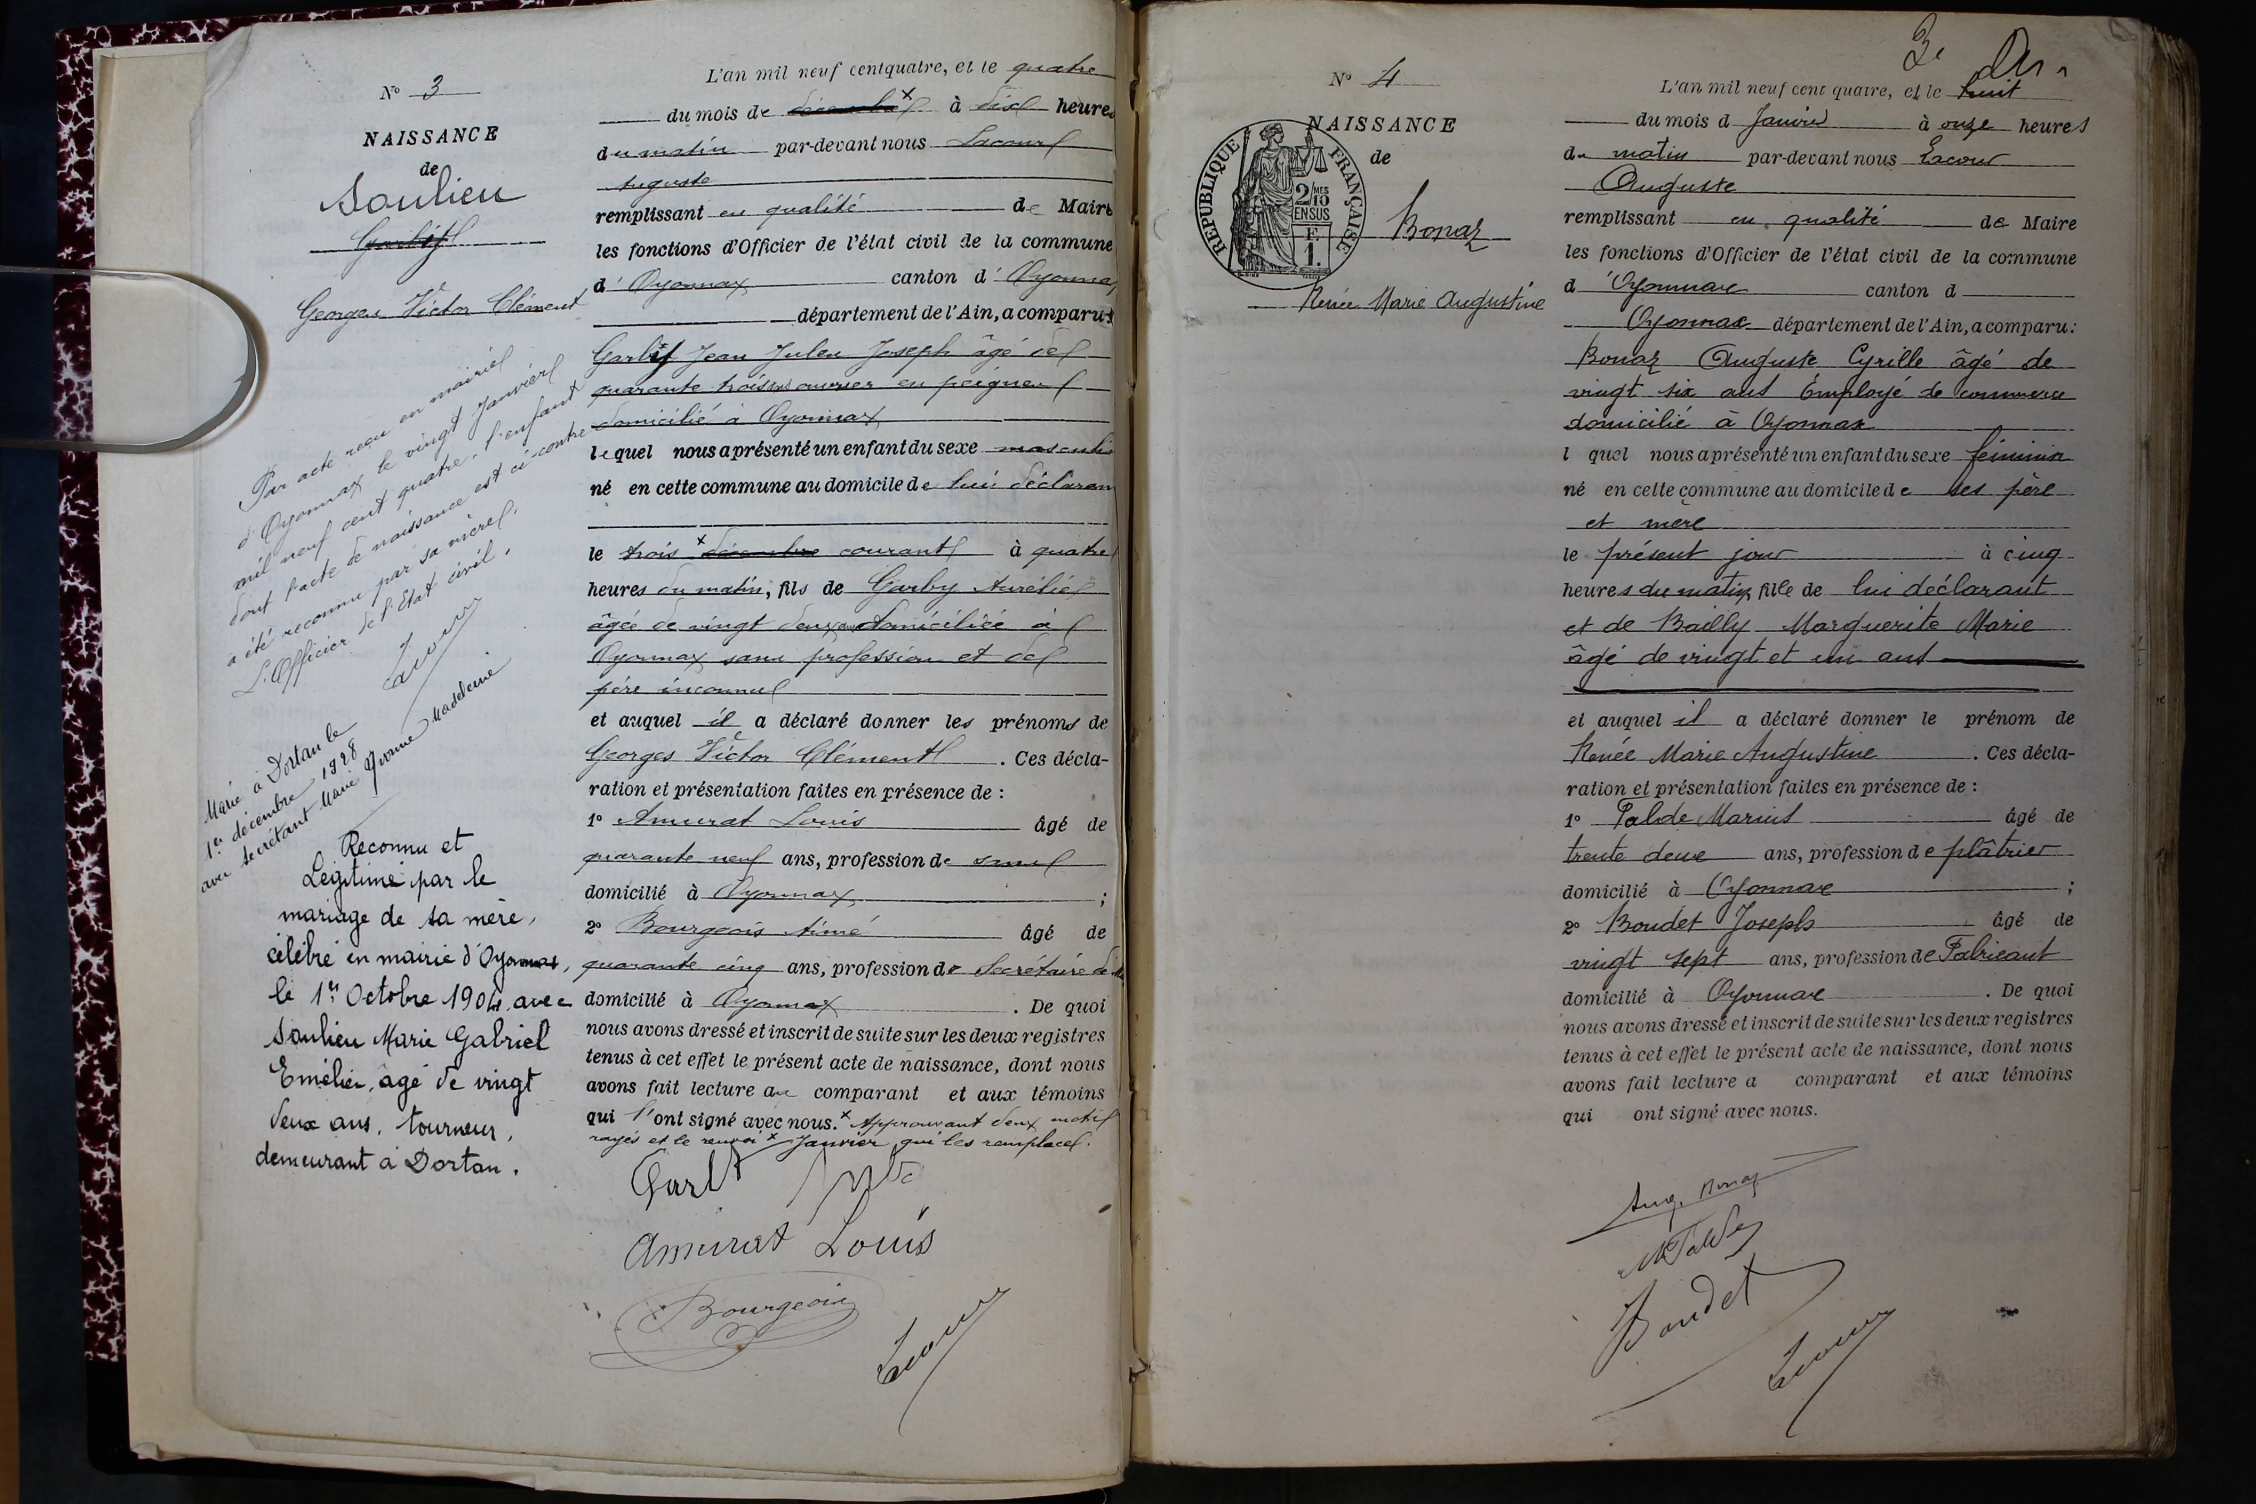 N° 3
NAISSANCE
de
Soulieu
Garby
Georges Victor Clément
Par acte reçu en mairie
d'Oyonnax le vingt Janvier
mil neuf cent quatre, l'enfant
dont l'acte de naissance est ci-contre
a été reconnu par sa mère.
L'Officier de l'Etat civil.
Lacour
Marié à Dortan le
1er décembre 1928
avec Secrétant Marie Yvonne Madeleine
Reconnu et
Légitimé par le
mariage de sa mère,
célébré en mairie d'Oyonnax,
le 1er Octobre 1904 avec
Soulieu Marie Gabriel
Emélien, âgé de vingt
deux ans, tourneur,
demeurant à Dortan.
L'an mil neuf cent quatre, et le quatre
du mois de décembre x à dix heures
du matin par-devant nous Lacour
Auguste
remplissant en qualité de Maire
les fonctions d'Officier de l'état civil de la commune
d'Oyonnax canton d'Oyonnax
département de l'Ain, a comparu
Garby Jean Jules Joseph âgé de
quarante trois ans ouvrier en peignes
domicilié à Oyonnax
lequel nous a présenté un enfant du sexe masculin
né en cette commune au domicile de lui déclarant
le trois x décembre courant à quatre
heures du matin, fils de Garby Aurélie
âgée de vingt deux ans domiciliée à
Oyonnax sans profession et de
père inconnu
et auquel il a déclaré donner les prénoms de
Georges Victor Clément. Ces décla-
ration et présentation faites en présence de :
1° Amurat Louis âgé de
quarante neuf ans, profession de
domicilié à Oyonnax ;
2° Bourgeois Aimé âgé de
quarante cinq ans, profession de Secrétaire de
domicilié à Oyonnax. De quoi
nous avons dressé et inscrit de suite sur les deux registres
tenus à cet effet le présent acte de naissance, dont nous
avons fait lecture au comparant et aux témoins
qui l'ont signé avec nous. x Approuvant deux mots
rayés et le renvoi x Janvier qui les remplace.
Amurat Louis
Bourgeois
Lacour
3e
N° 4
NAISSANCE
de
RÉPUBLIQUE FRANÇAISE
2/10
MES
EN SUS
F.
1.
Bonaz
Renée Marie Augustine
L'an mil neuf cent quatre, et le huit
du mois d Janvier à onze heures
du matin par-devant nous Lacour
Auguste
remplissant en qualité de Maire
les fonctions d'Officier de l'état civil de la commune
d'Oyonnax canton d
Oyonnax département de l'Ain, a comparu :
Bonaz Auguste Cyrille âgé de
vingt six ans Employé de commerce
domicilié à Oyonnax
l quel nous a présenté un enfant du sexe féminin
né en cette commune au domicile de ses père
et mère
le présent jour à cinq
heures du matin, fille de lui déclarant
et de Bailly Marguerite Marie
âgé de vingt et un ans
et auquel il a déclaré donner le prénom de
Renée Marie Augustine. Ces décla-
ration et présentation faites en présence de :
1° Marius âgé de
trente deux ans, profession de plâtrier
domicilié à Oyonnax ;
2° Boudet Joseph âgé de
vingt sept ans, profession de Fabricant
domicilié à Oyonnax. De quoi
nous avons dressé et inscrit de suite sur les deux registres
tenus à cet effet le présent acte de naissance, dont nous
avons fait lecture a comparant et aux témoins
qui ont signé avec nous.
Aug. Bonaz
Boudet
Lacour